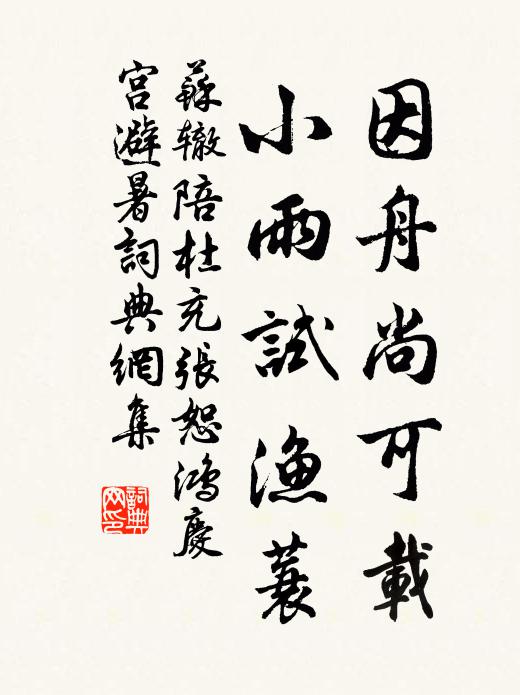 因舟尚可載
小雨試漁蓑
蘇辙陪杜充張恕鴻慶
宮避暑詞典網集
詞典网印